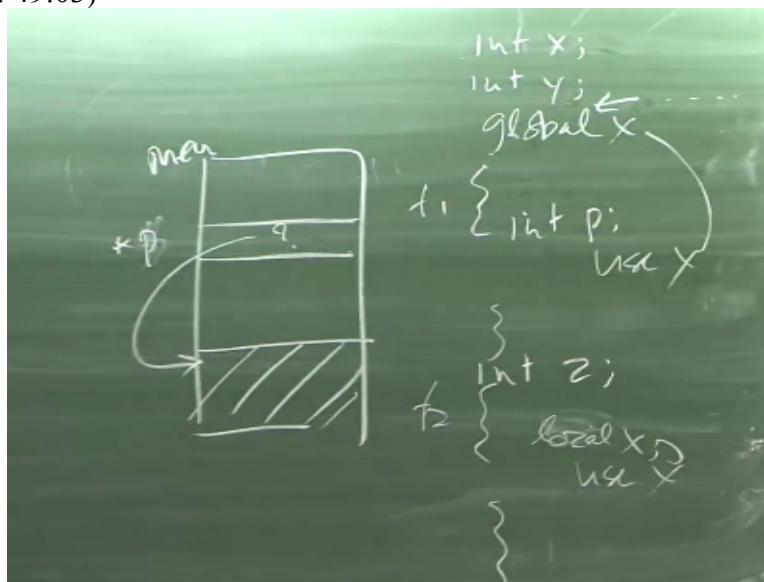 49:05)
int x;
int y;
global x
mem
f1 {
int p;
use x
* p
?
}
int z;
f2 {
local x;
use x
}